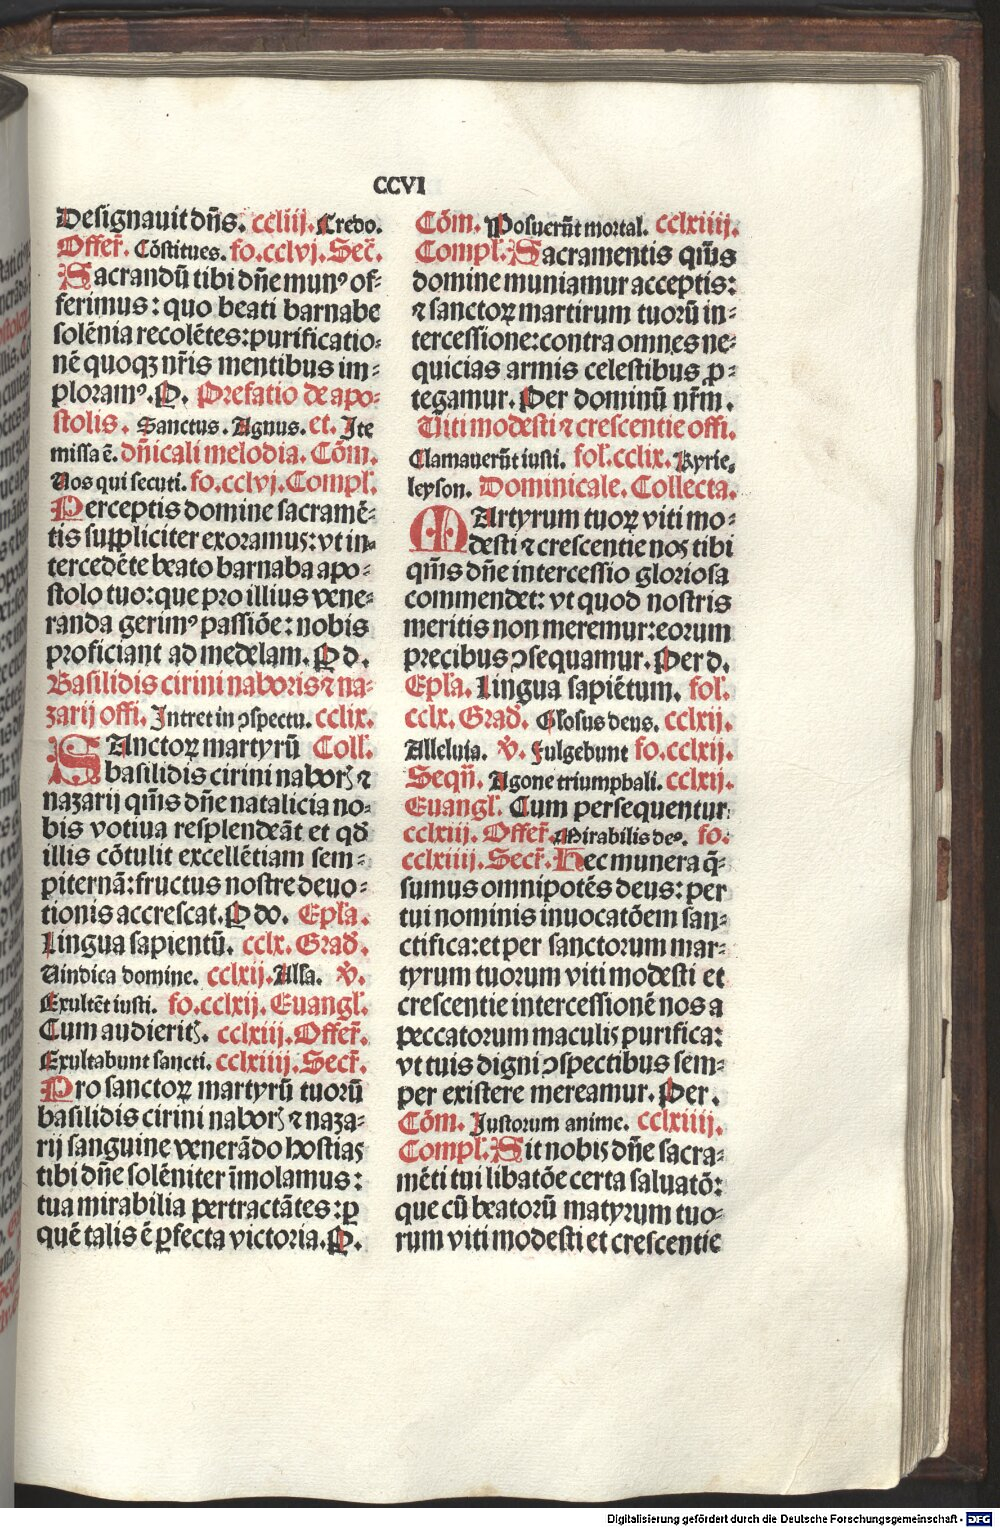 CCVI
Designauit dñs. ccliij. Credo.
Offer̃. Cõstitues. fo.cclvj. Sec̃.
Sacrandũ tibi dñe munꝰ of⸗
ferimus: quo beati barnabe
solẽnia recolẽtes: purificatio⸗
nẽ quoqꝫ nr̃is mentibus im⸗
ploramꝰ. P. Prefatio de apo⸗
stolis. Sanctus. Agnus. et. Ite
missa ẽ. dñicali melodia. Cõm.
Uos qui secuti. fo.cclvj. Compl̃.
Perceptis domine sacramẽ⸗
tis suppliciter exoramus: vt in⸗
tercedẽte beato barnaba apo⸗
stolo tuo: que pro illius vene⸗
randa gerimꝰ passiõe: nobis
proficiant ad medelam. P d.
Basilidis cirini naboris ⁊ na⸗
zarij offi. Intret in ꝯspectu. cclix.
SAnctoꝝ martyrũ Coll̃.
basilidis cirini naborꝭ ⁊
nazarij qm̃s dñe natalicia no⸗
bis votiua resplendeãt et qđ
illis cõtulit excellẽtiam sem⸗
piternã: fructus nostre deuo⸗
tionis accrescat. P do. Epl̃a.
Lingua sapientũ. cclx. Grad̃.
Uindica domine. cclxij. All̃a. ℣.
Exultẽt iusti. fo.cclxij. Euangl̃.
Cum audieritꝭ. cclxiij. Offer̃.
Exultabunt sancti. cclxiiij. Secr̃.
Pro sanctoꝝ martyrũ tuorũ
basilidis cirini naborꝭ ⁊ naza⸗
rij sanguine venerãdo hostias
tibi dñe solẽniter ĩmolamus:
tua mirabilia pertractãtes: ꝑ
quẽ talis ẽ ꝑfecta victoria. P.
Cõm. Posuerũt mortal. cclxiiij.
Compl̃. Sacramentis qm̃s
domine muniamur acceptis:
⁊ sanctoꝝ martirum tuorũ in⸗
tercessione: contra omnes ne⸗
quicias armis celestibus ꝓ⸗
tegamur. Per dominũ nr̃m.
Uiti modesti ⁊ crescentie offi.
Clamauerũt iusti. fol̃. cclix. Kyrie⸗
leyson. Dominicale. Collecta.
MArtyrum tuoꝝ viti mo⸗
desti ⁊ crescentie nos tibi
qm̃s dñe intercessio gloriosa
commendet: vt quod nostris
meritis non meremur: eorum
precibus ꝯsequamur. Per d.
Epl̃a. Lingua sapiẽtum. fol̃.
cclx. Grad̃. Glosus deus. cclxij.
Alleluia. ℣. Fulgebunt fo.cclxij.
Seqñ. Agone triumphali. cclxij.
Euangl̃. Cum persequentur.
cclxiij. Offer̃. Mirabilis deꝰ. fo.
cclxiiij. Secr̃. Hec munera q̃⸗
sumus omnipotẽs deus: per
tui nominis inuocatõem san⸗
ctifica: et per sanctorum mar⸗
tyrum tuorum viti modesti et
crescentie intercessionẽ nos a
peccatorum maculis purifica:
vt tuis digni ꝯspectibus sem⸗
per existere mereamur. Per.
Cõm. Justorum anime. cclxiiij.
Compl̃. Sit nobis dñe sacra⸗
mẽti tui libatõe certa saluatõ:
que cũ beatorũ matyrum tuo⸗
rum viti modesti et crescentie
Digitalisierung gefördert durch die Deutsche Forschungsgemeinschaft - DFG